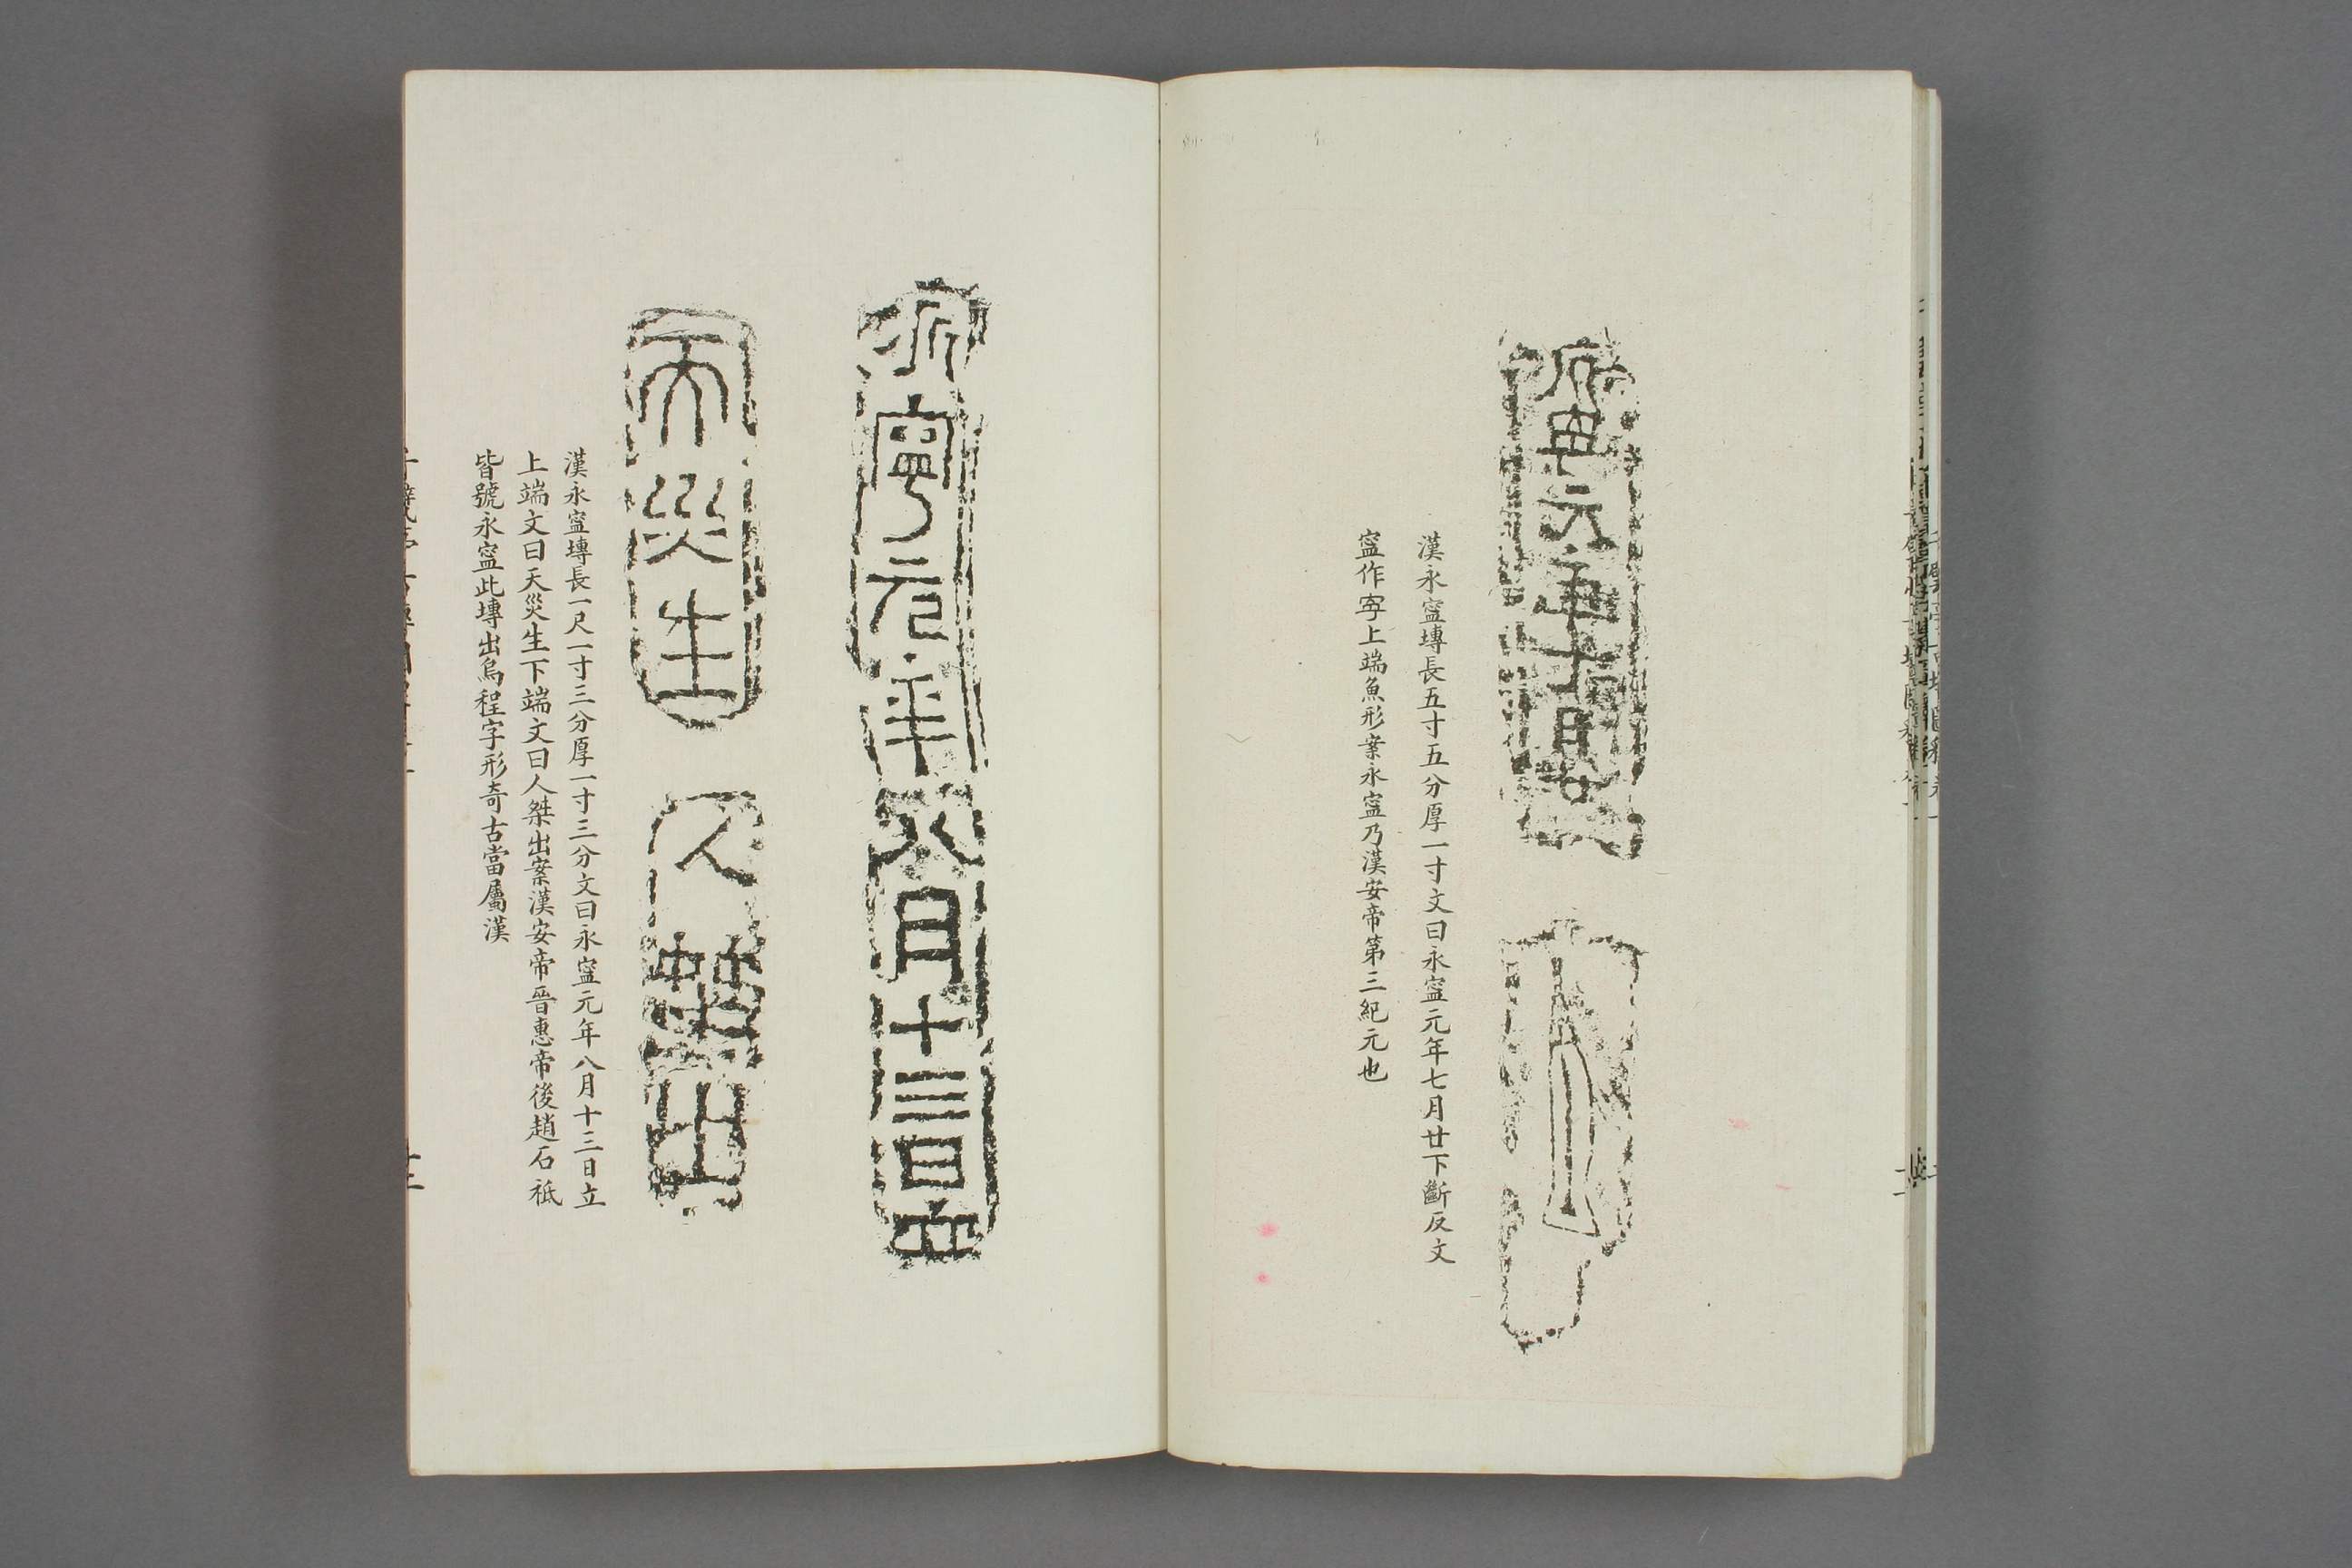 永寍元年七月廿
漢永寍塼長五寸五分厚一寸文曰永寍元年七月廿下斷反文
寍作寧上端魚形案永寍乃漢安帝第三紀元也
永寧元年八月十三日立
天災生
人桀出
漢永寍塼長一尺一寸三分厚一寸三分文曰永寍元年八月十三日立
上端文曰天災生下端文曰人桀出案漢安帝晉惠帝後趙石祗
皆號永寍此塼出烏程字形奇古當屬漢